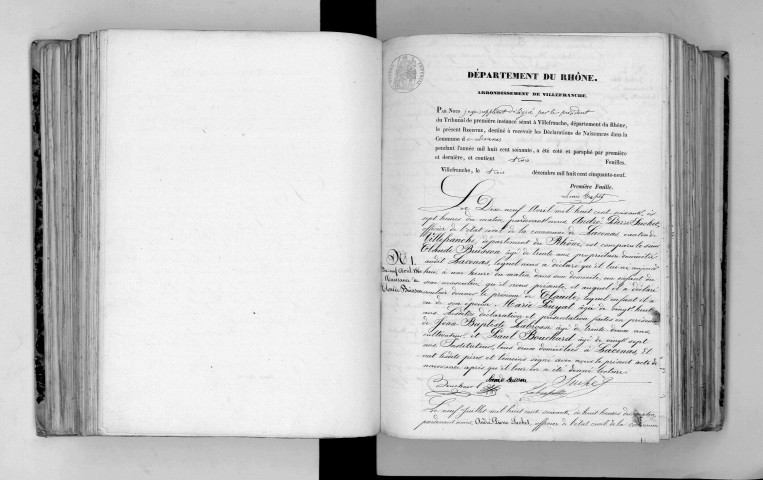 DÉPARTEMENT DU RHÔNE.
ARRONDISSEMENT DE VILLEFRANCHE
PAR NOUS juge suppléant délégué par le président
du Tribunal de première instance séant à Villefranche, département du Rhône,
le présent REGISTRE, destiné à recevoir les Déclarations de Naissances dans la
Commune d e Lacenas
pendant l'année mil huit cent soixante, a été coté et paraphé par première
et dernière, et contient trois Feuilles.
Villefranche, le trois décembre mil huit cent cinquante-neuf.
Première Feuille.
Le Dix neuf Avril mil huit cent soixante, à
sept heures du matin, pardevant nous André Pierre Suchet,
officier de l'état civil de la commune de Lacenas, canton de
Villefranche, département du Rhône, est comparu le sieur
Claude Buisson âgé de trente ans propriétaire domicilié
N° 1.
Dix neuf Avril 1860
Naissance de
Claude Buisson
audit Lacenas, lequel nous a déclaré que
hui, à une heure du matin dans son domicile, un enfant du
sexe masculin qu'il nous présente, et auquel il a déclaré
vouloir donner le prénom de Claude, lequel enfant il a
eu de son épouse Marie Guyat âgée de vingt huit
ans. Lesdites déclaration et présentation faites en présence
de Jean Baptiste Labrosse âgé de trente deux ans
cultivateur, et Paul Bouchard âgé de vingt sept
ans Instituteur, tous deux domiciliés à Lacenas. Et
ont lesdits père et témoins signé avec nous le présent acte de
naissance après qu'il leur en a été donné lecture.
Buisson
Bouchard Suchet
Le neuf Juillet mil huit cent soixante, à huit heures du matin,
pardevant nous, André Pierre Suchet, officier de l'état civil de la commune